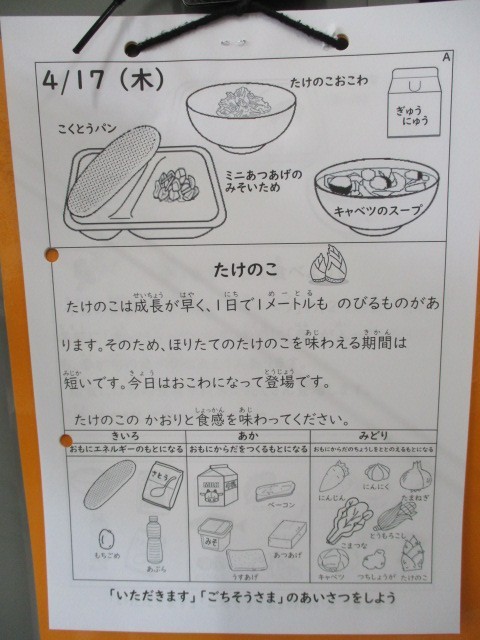 A
4/17（木）
たけのこおこわ
ぎゅう
にゅう
こくとうパン
ミニあつあげの
みそいため
キャベツのスープ
たけのこ
せいちょう はや にち めーとる
たけのこは成長が早く、1日で1メートルも のびるものがあ
あじ きかん
ります。そのため、ほりたてのたけのこを味わえる期間は
みじか きょう とうじょう
短いです。今日はおこわになって登場です。
しょっかん あじ
たけのこの かおりと食感を味わってください。
きいろ あか みどり
おもにエネルギーのもとになる おもにからだをつくるもとになる おもにからだのちょうしをととのえるもとになる
さとう
もちごめ
あぶら
ベーコン
みそ
あつあげ
うすあげ
にんじん
にんにく
たまねぎ
こまつな
とうもろこし
キャベツ
つちしょうが
たけのこ
「いただきます」「ごちそうさま」のあいさつをしよう